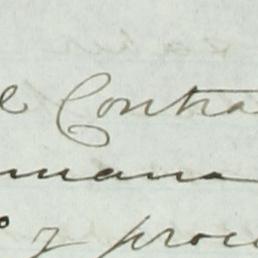 e Contra
muana
o y proce